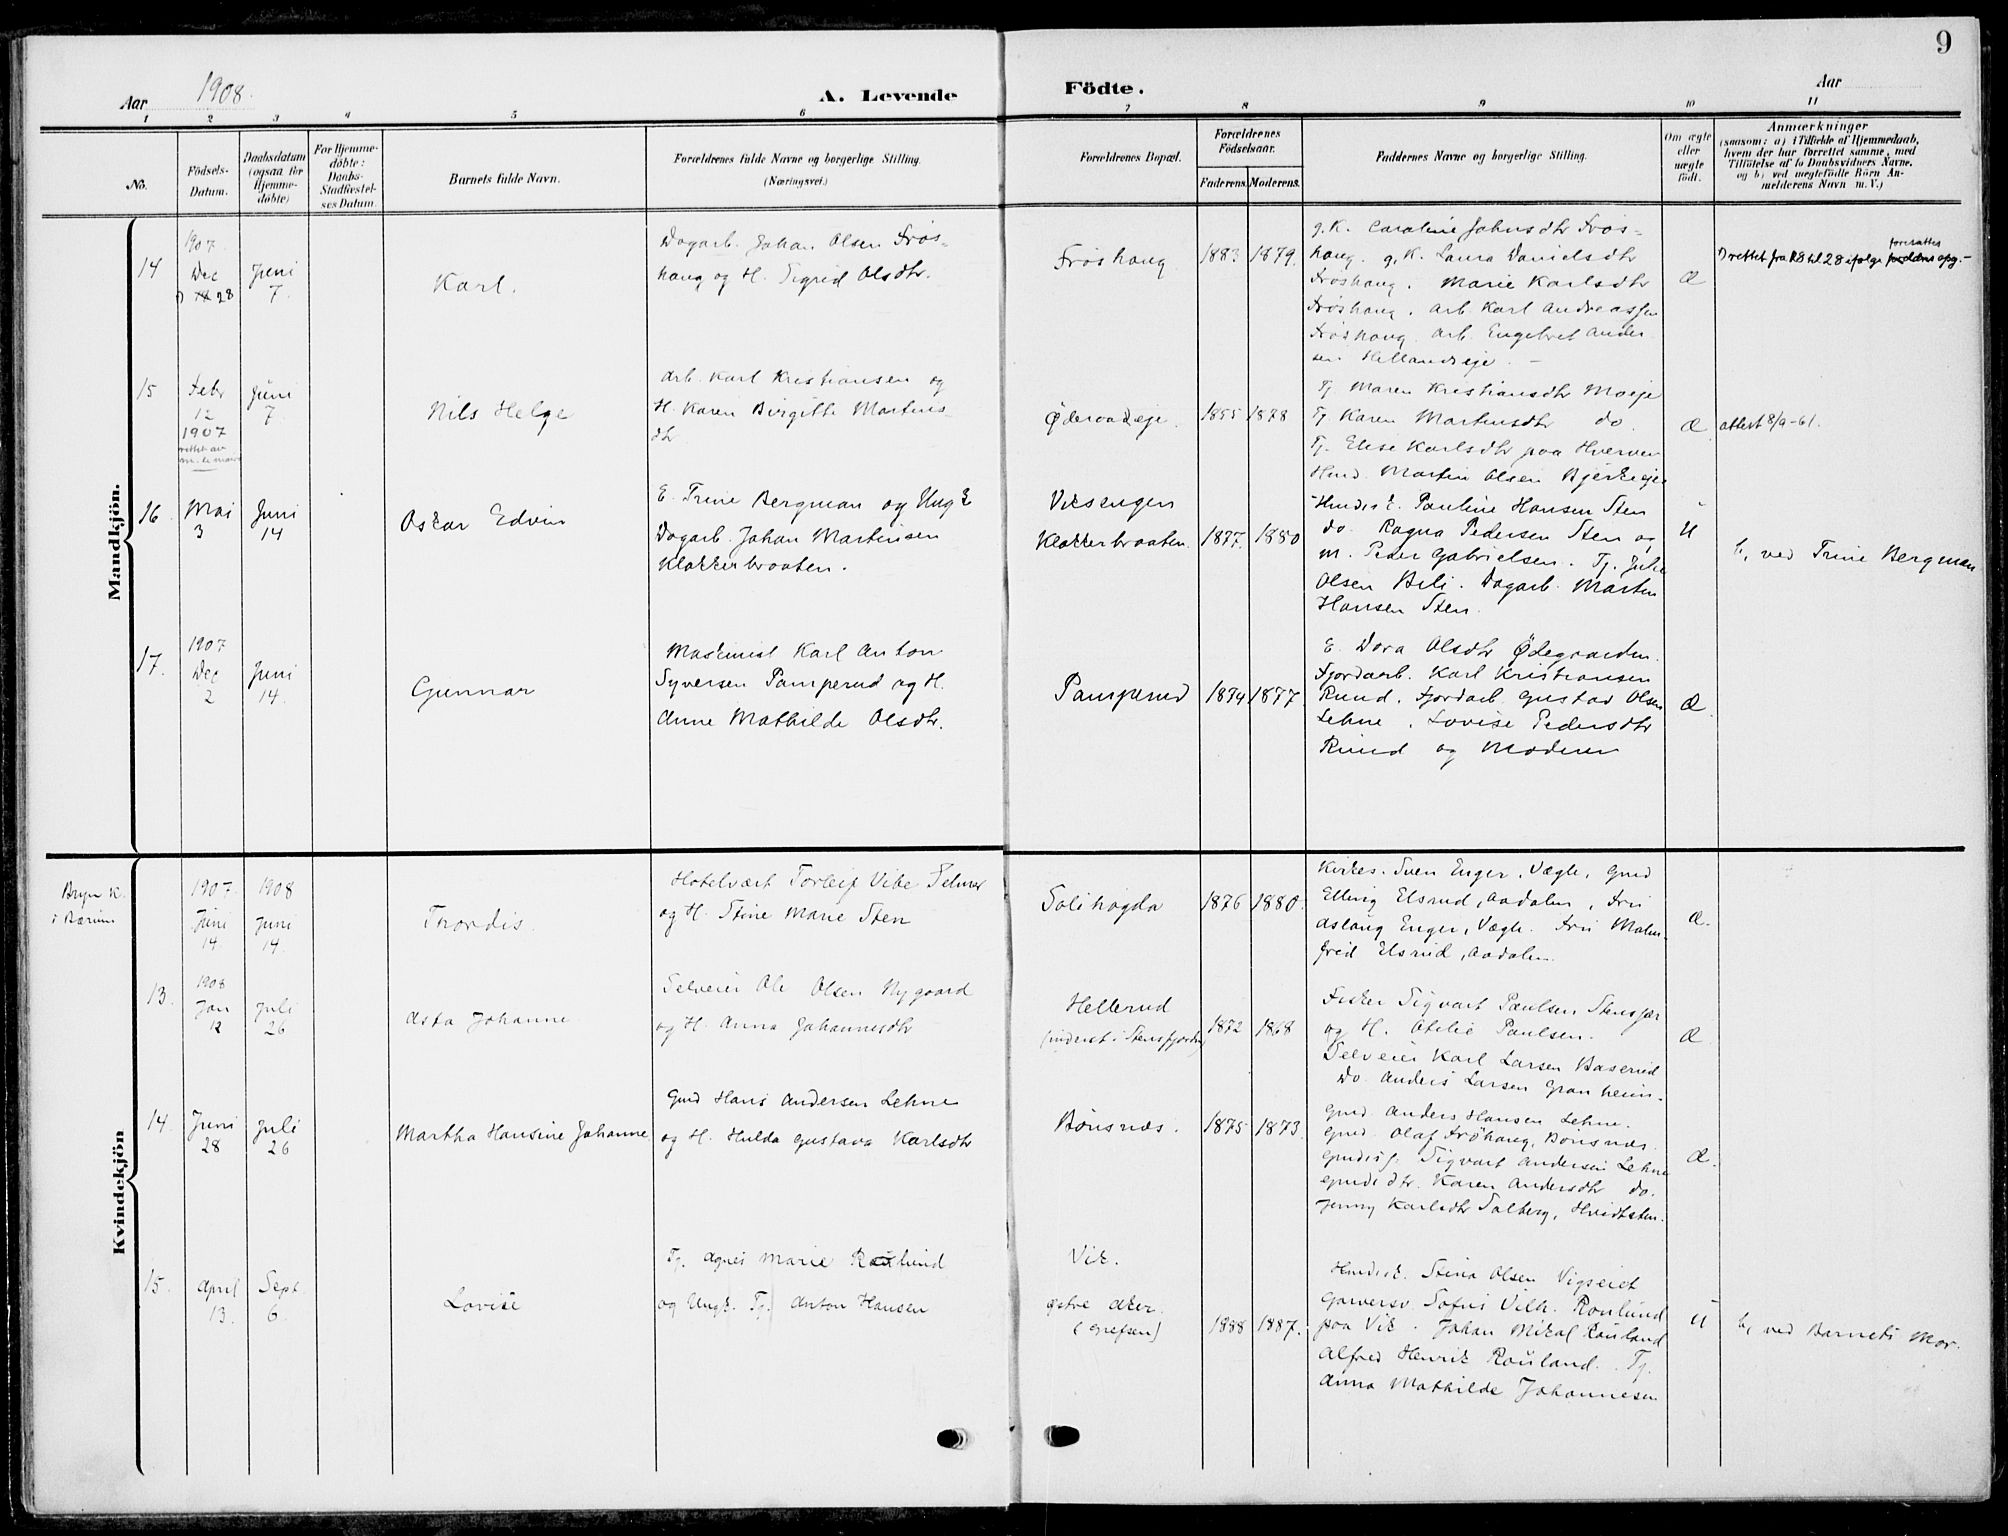 9
Aar 1908. A. Levende Födte. Aar
1 2 3 4 5 6 7 8 9 10 11
No.
Födsels-
Datum.
Daabsdatum
(ogsaa for
Hjemme-
døbte)
For Hjemme-
døbte:
Daabs-
Stadfæstel-
ses Datum.
Barnets fulde Navn.
Forældrenes fulde Navne og borgerlige Stilling.
(Næringsvei.)
Forældrenes Bopæl.
Forældrenes
Födselsaar.
Faderens. Moderens.
Faddernes Navne og borgerlige Stilling.
Om ægte
eller
uægte
født.
Anmærkninger
(saasom: a) i Tilfælde af Hjemmedaab,
hvem der har forrettet samme, med
Tilföielse af to Daabsvidners Navne.
og b) ved uægtefödte Börn An-
melderens Navn m. V.)
Mandkjön.
14
1907.
Dec
28
Juni
7.
Karl.
Dagarb. Johan Olsen Frøs-
haug og H. Sigrid Olsdtr.
Frøshaug
1883 1879.
g. K. Caroline Johnsdtr Frøs-
haug. g. K. Laura Danielsdtr
Frøshaug. Marie Karlsdtr
Frøshaug. Arb. Karl Andreassen
Frøshaug. Arb. Engebret Ander
sen Hellandseje. -
Æ
rettet fra 18 til 28 ifølge forældres opg.-
15
Febr
12
1907
rettet av
Juni
7.
Nils Helge
Arb. Karl Kristiansen og
H. Karen Birgitte Martins
dtr
1855 1878
Tj. Maren Kristiansdtr Moeje
Tj. Karen Martinsdtr do.
Tj. Elise Karlsdtr paa Hverven
Hmd. Martin Olsen Bjerkeeje
Æ
attest 8/9-61.
16.
Mai
3
Juni
14
Oskar Edvin
E. Trine Bergman og Ungk
Dagarb. Johan Martinsen
Klokkerbraaten.
Viksengen
Klokkerbraaten.
1877. 1880
Hmdsk. Pauline Hansen Sten
do. Ragna Pedersen Sten og
m. Peder Gabrielsen. Tj. Julie
Olsen Bili. Dagarb. Martin
Hansen Sten.
U
b, ved Trine Bergman
17.
1907
Dec
2
Juni
14.
Gunnar
Maskinist Karl Anton
Syversen Pamperud og H.
Anne Mathilde Olsdtr.
Pamperud
1874 1877.
E. Dora Olsdtr Ødegaarden.
Fjordarb. Karl Kristiansen
Rund. Fjordarb. Gustav Olsen
Lehne. Lovise Pedersdtr
Rund og Moderen
Æ.
Kvindekjön
Bryn K.
i Bærum
1907.
Juni
14
1908
Juni
14.
Thordis.
Hotelvært Torleif Vibe Selmer
og H. Stine Marie Sten
Solihøgda
1876 1880.
Kirkes. Sven Enger, Vægle, Gmd
Elling Elsrud, Aadalen, Fru
Aslaug Enger, Vægle. Fru Malm-
frid Elsrud, Aadalen.
Æ.
13.
1908
Jan
12
Juli
26
Asta Johanne
Selveier Ole Olsen Nygaard
og H. Anna Johannesdtr
Hellerud
(inderst i Stensfjorden)
1872 1868
Fisker Sigvart Paulsen Stensfjær
og H. Otelie Paulsen.
Selveier Karl Larsen Baserud
Do. Anders Larsen Granheim.
Æ.
14.
Juni
28
Juli
26
Martha Hansine Johanne
Gmd Hans Andersen Lehne
og H. Hulda Gustava Karlsdtr
Bønsnæs.
1875 1873.
Gmd. Anders Hansen Lehne.
Gmd. Olaf Frøhaug, Bønsnæs
Gmdss. Sigvart Andersen Lehne
Gmdsdtr. Karen Andersdtr do.
Jenny Karlsdtr Solberg, Hvidsten.
Æ.
15.
April
13.
Sept.
6.
Lovise
Tj. Agnes Marie Raulund
og Ungk. Tj. Anton Hansen
Vik.
østre Aker.
(Grefsen)
1888 1887.
Hmdsk. Stina Olsen Vigseiet
Garversv. Sofus Vilh. Roulund
paa Vik. Johan Mikal Rouland
Alfred Henrik Rouland. Tj.
Anna Mathilde Johannesen
U
b, ved Barnets Mor.